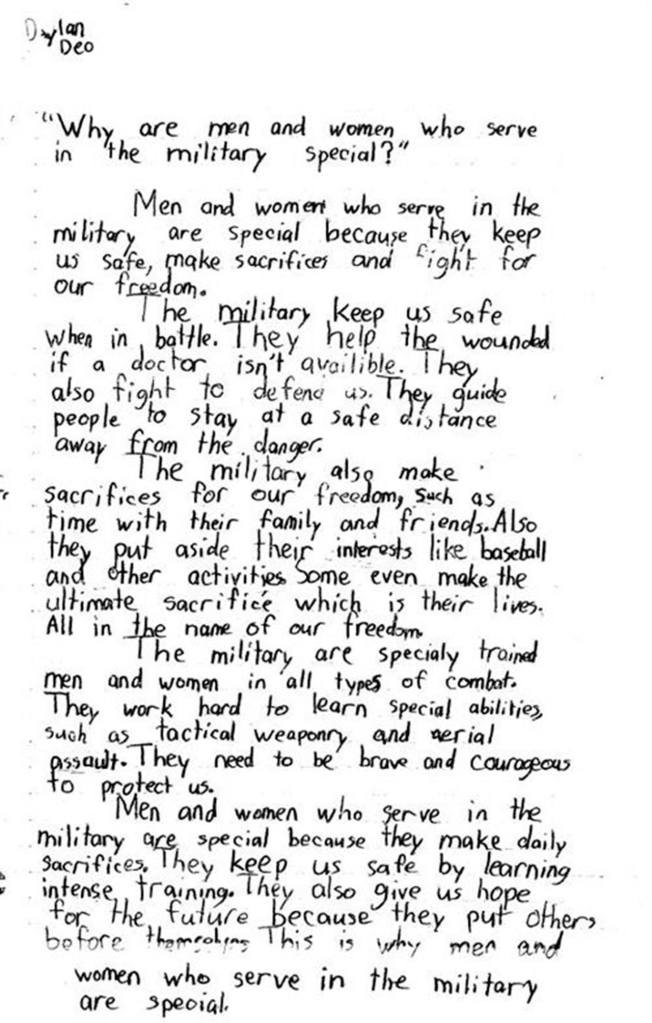 Dylan
Deo
"Why are men and women who serve
in the military special?"
Men and women who serve in the
military are special because they keep
us safe, make sacrifices and fight for
our freedom.
The military keep us safe
when in battle. They help the wounded
if a doctor isn't availible. They
also fight to defend us. They guide
people to stay at a safe distance
away from the danger.
The military also make
sacrifices for our freedom, such as
time with their family and friends. Also
they put aside their interests like baseball
and other activities. Some even make the
ultimate sacrifice which is their lives.
All in the name of our freedom.
The military are specialy trained
men and women in all types of combat.
They work hard to learn special abilities,
such as tactical weaponry and aerial
assault. They need to be brave and courageous
to protect us.
Men and women who serve in the
military are special because they make daily
sacrifices. They keep us safe by learning
intense training. They also give us hope
for the future because they put others
before themselves This is why men and
women who serve in the military
are special.